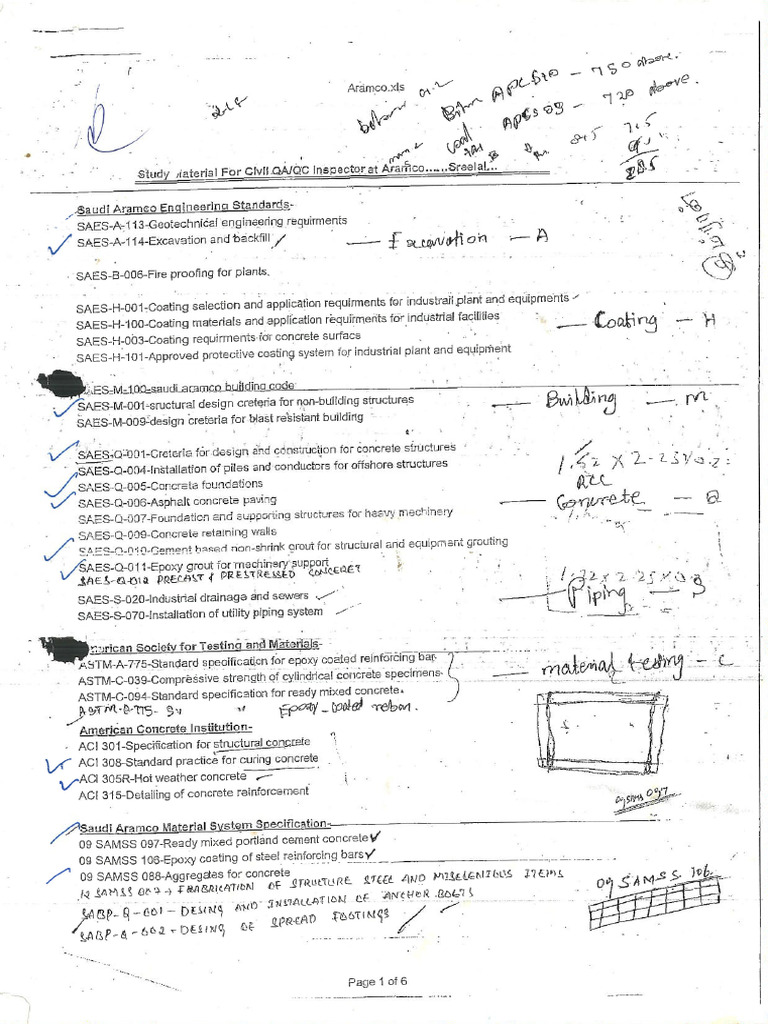 Aramco.xls
Bitm APCS 10 - 750 above.
Coal APCS 03 - 720 above.
Study Material For Civil QA/QC Inspector at Aramco......Sreelal...
Saudi Aramco Engineering Standards-
SAES-A-113-Geotechnical engineering requirments
SAES-A-114-Excavation and backfill
Excavation — A
SAES-B-006-Fire proofing for plants.
SAES-H-001-Coating selection and application requirments for industrail plant and equipments
SAES-H-100-Coating materials and application requirments for industrial facilities
SAES-H-003-Coating requirments for concrete surface
Coating — H
SAES-H-101-Approved protective coating system for industrial plant and equipment
AES-M-100-saudi aramco building code
SAES-M-001-sructural design creteria for non-building structures
Building — M
SAES-M-009-design creteria for blast resistant building
SAES-Q-001-Creteria for design and construction for concrete structures
SAES-Q-004-Installation of piles and conductors for offshore structures
SAES-Q-005-Concrete foundations
SAES-Q-006-Asphalt concrete paving
Concrete — Q
SAES-Q-007-Foundation and supporting structures for heavy machinery
SAES-Q-009-Concrete retaining walls
SAES-Q-010-Cement based non-shrink grout for structural and equipment grouting
SAES-Q-011-Epoxy grout for machinery support
SAES-Q-012 PRECAST & PRESTRESSED CONCERET
SAES-S-020-Industrial drainage and sewers
Piping — S
SAES-S-070-Installation of utility piping system
American Society for Testing and Materials-
ASTM-A-775-Standard specification for epoxy coated reinforcing bar
ASTM-C-039-Compressive strength of cylindrical concrete specimens
material testing - C
ASTM-C-094-Standard specification for ready mixed concrete.
Epoxy-coated rebar.
American Concrete Institution-
ACI 301-Specification for structural concrete
ACI 308-Standard practice for curing concrete
ACI 305R-Hot weather concrete
ACI 315-Detailing of concrete reinforcement
09 SAMSS 097
Saudi Aramco Material System Specification-
09 SAMSS 097-Ready mixed portland cement concrete
09 SAMSS 106-Epoxy coating of steel reinforcing bars
09 SAMSS 088-Aggregates for concrete
09 SAMSS 106
12 SAMSS 007 - FABRICATION OF STRUCTURE STEEL AND MISCLENIOUS ITEMS
SABP-Q-001 - DESING AND INSTALLATION OF ANCHOR BOLTS
SABP-Q-002 - DESING OF SPREAD FOOTINGS
Page 1 of 6